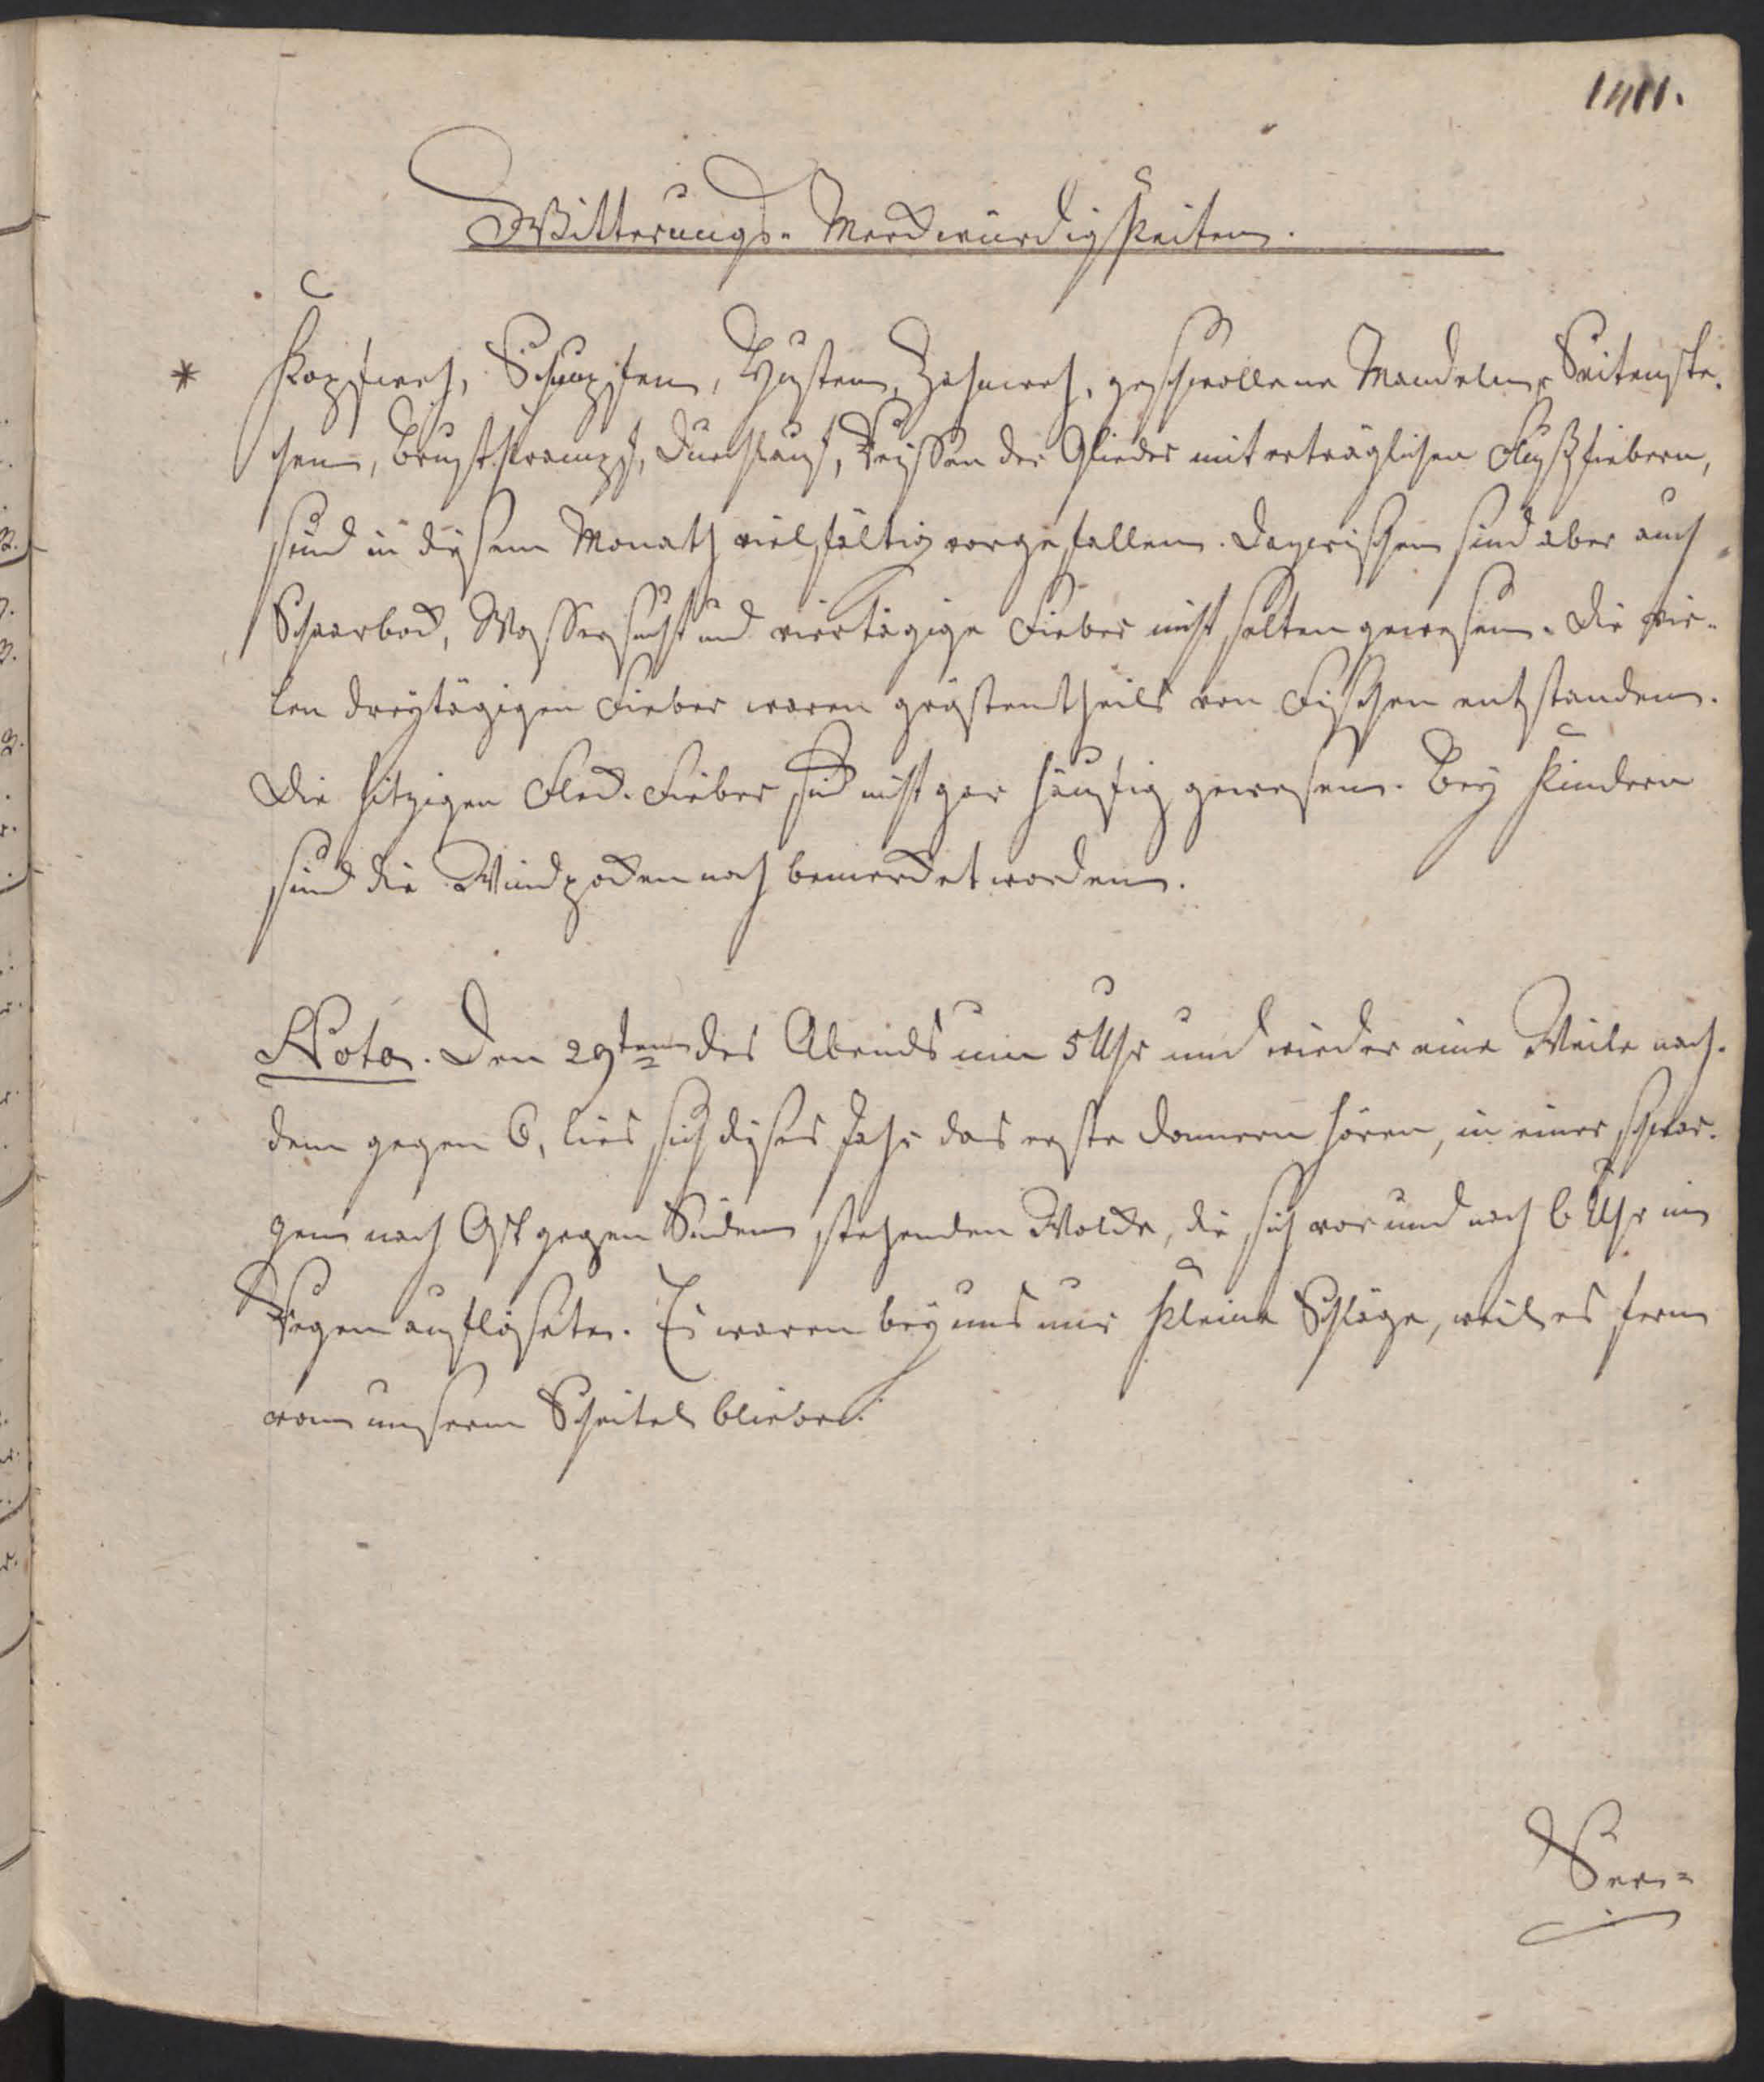 Witterungs-Merckwürdigkeiten.
* Kopfweh, Schnupfen, Husten, Zahnweh, geschwollene Mandeln, Seitenste-
chen, Brustkrampf, Durchlauf, Reissen der Glieder mit erträglichen Flußfiebern,
sind in diesem Monath vielfältig vorgefallen. Dazwischen sind aber auch
Scharbock, Wassersucht und viertägige Fieber nicht selten gewesen. Die vie-
len dreytägigen Fieber waren gröstentheils von Fischen entstanden.
Die hitzigen Fleck-Fieber sind nicht gar häufig gewesen. Bey Kindern
sind die Windpocken noch bemercket worden.
Nota. Den 29ten des Abends um 5 Uhr und wieder eine Weile nach-
dem gegen 6, lies sich dieses Jahr das erste Donnern hören, in einer schwar-
zen nach Ost gegen Süden stehenden Wolcke, die sich vor und nach 6 Uhr in
Regen auflösete. Es waren bey uns nur kleine Schläge, weil es fern
von unserm Scheitel bliebe.